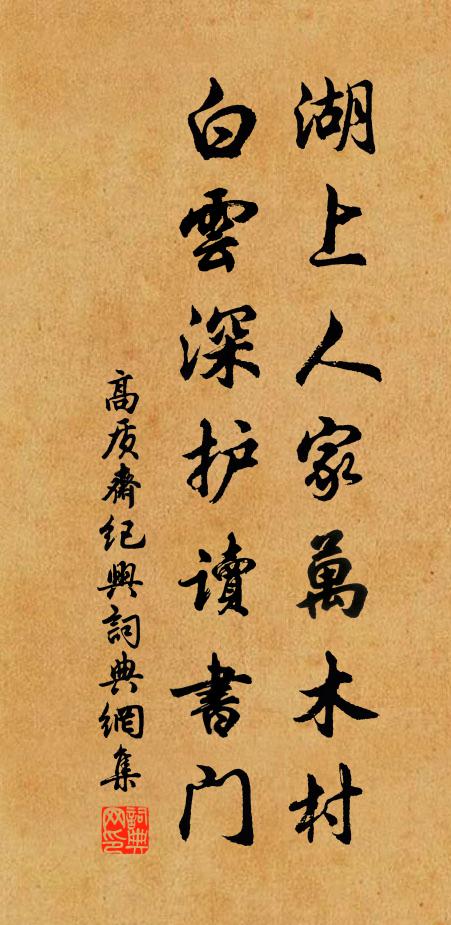 湖上人家萬木村
白雲深护讀書門
高质齋纪興詞典網集
詞典网印